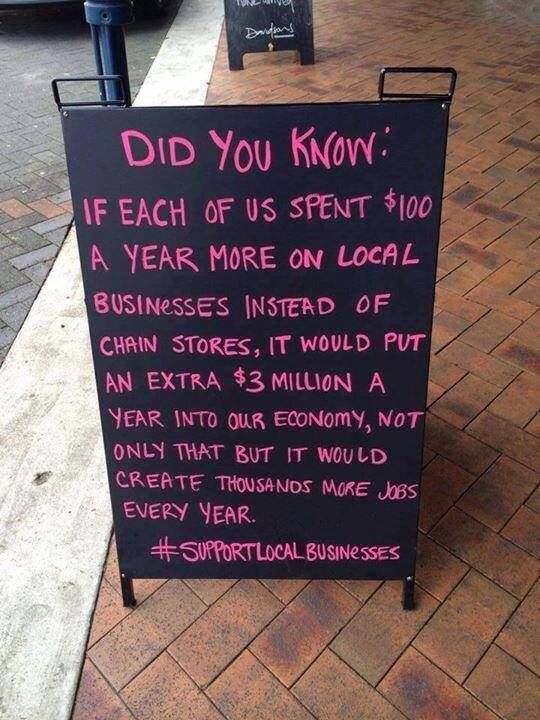 Davidson's
DID YOU KNOW:
IF EACH OF US SPENT $100
A YEAR MORE ON LOCAL
BUSINESSES INSTEAD OF
CHAIN STORES, IT WOULD PUT
AN EXTRA $3 MILLION A
YEAR INTO OUR ECONOMY, NOT
ONLY THAT BUT IT WOULD
CREATE THOUSANDS MORE JOBS
EVERY YEAR.
#SUPPORTLOCALBUSINESSES